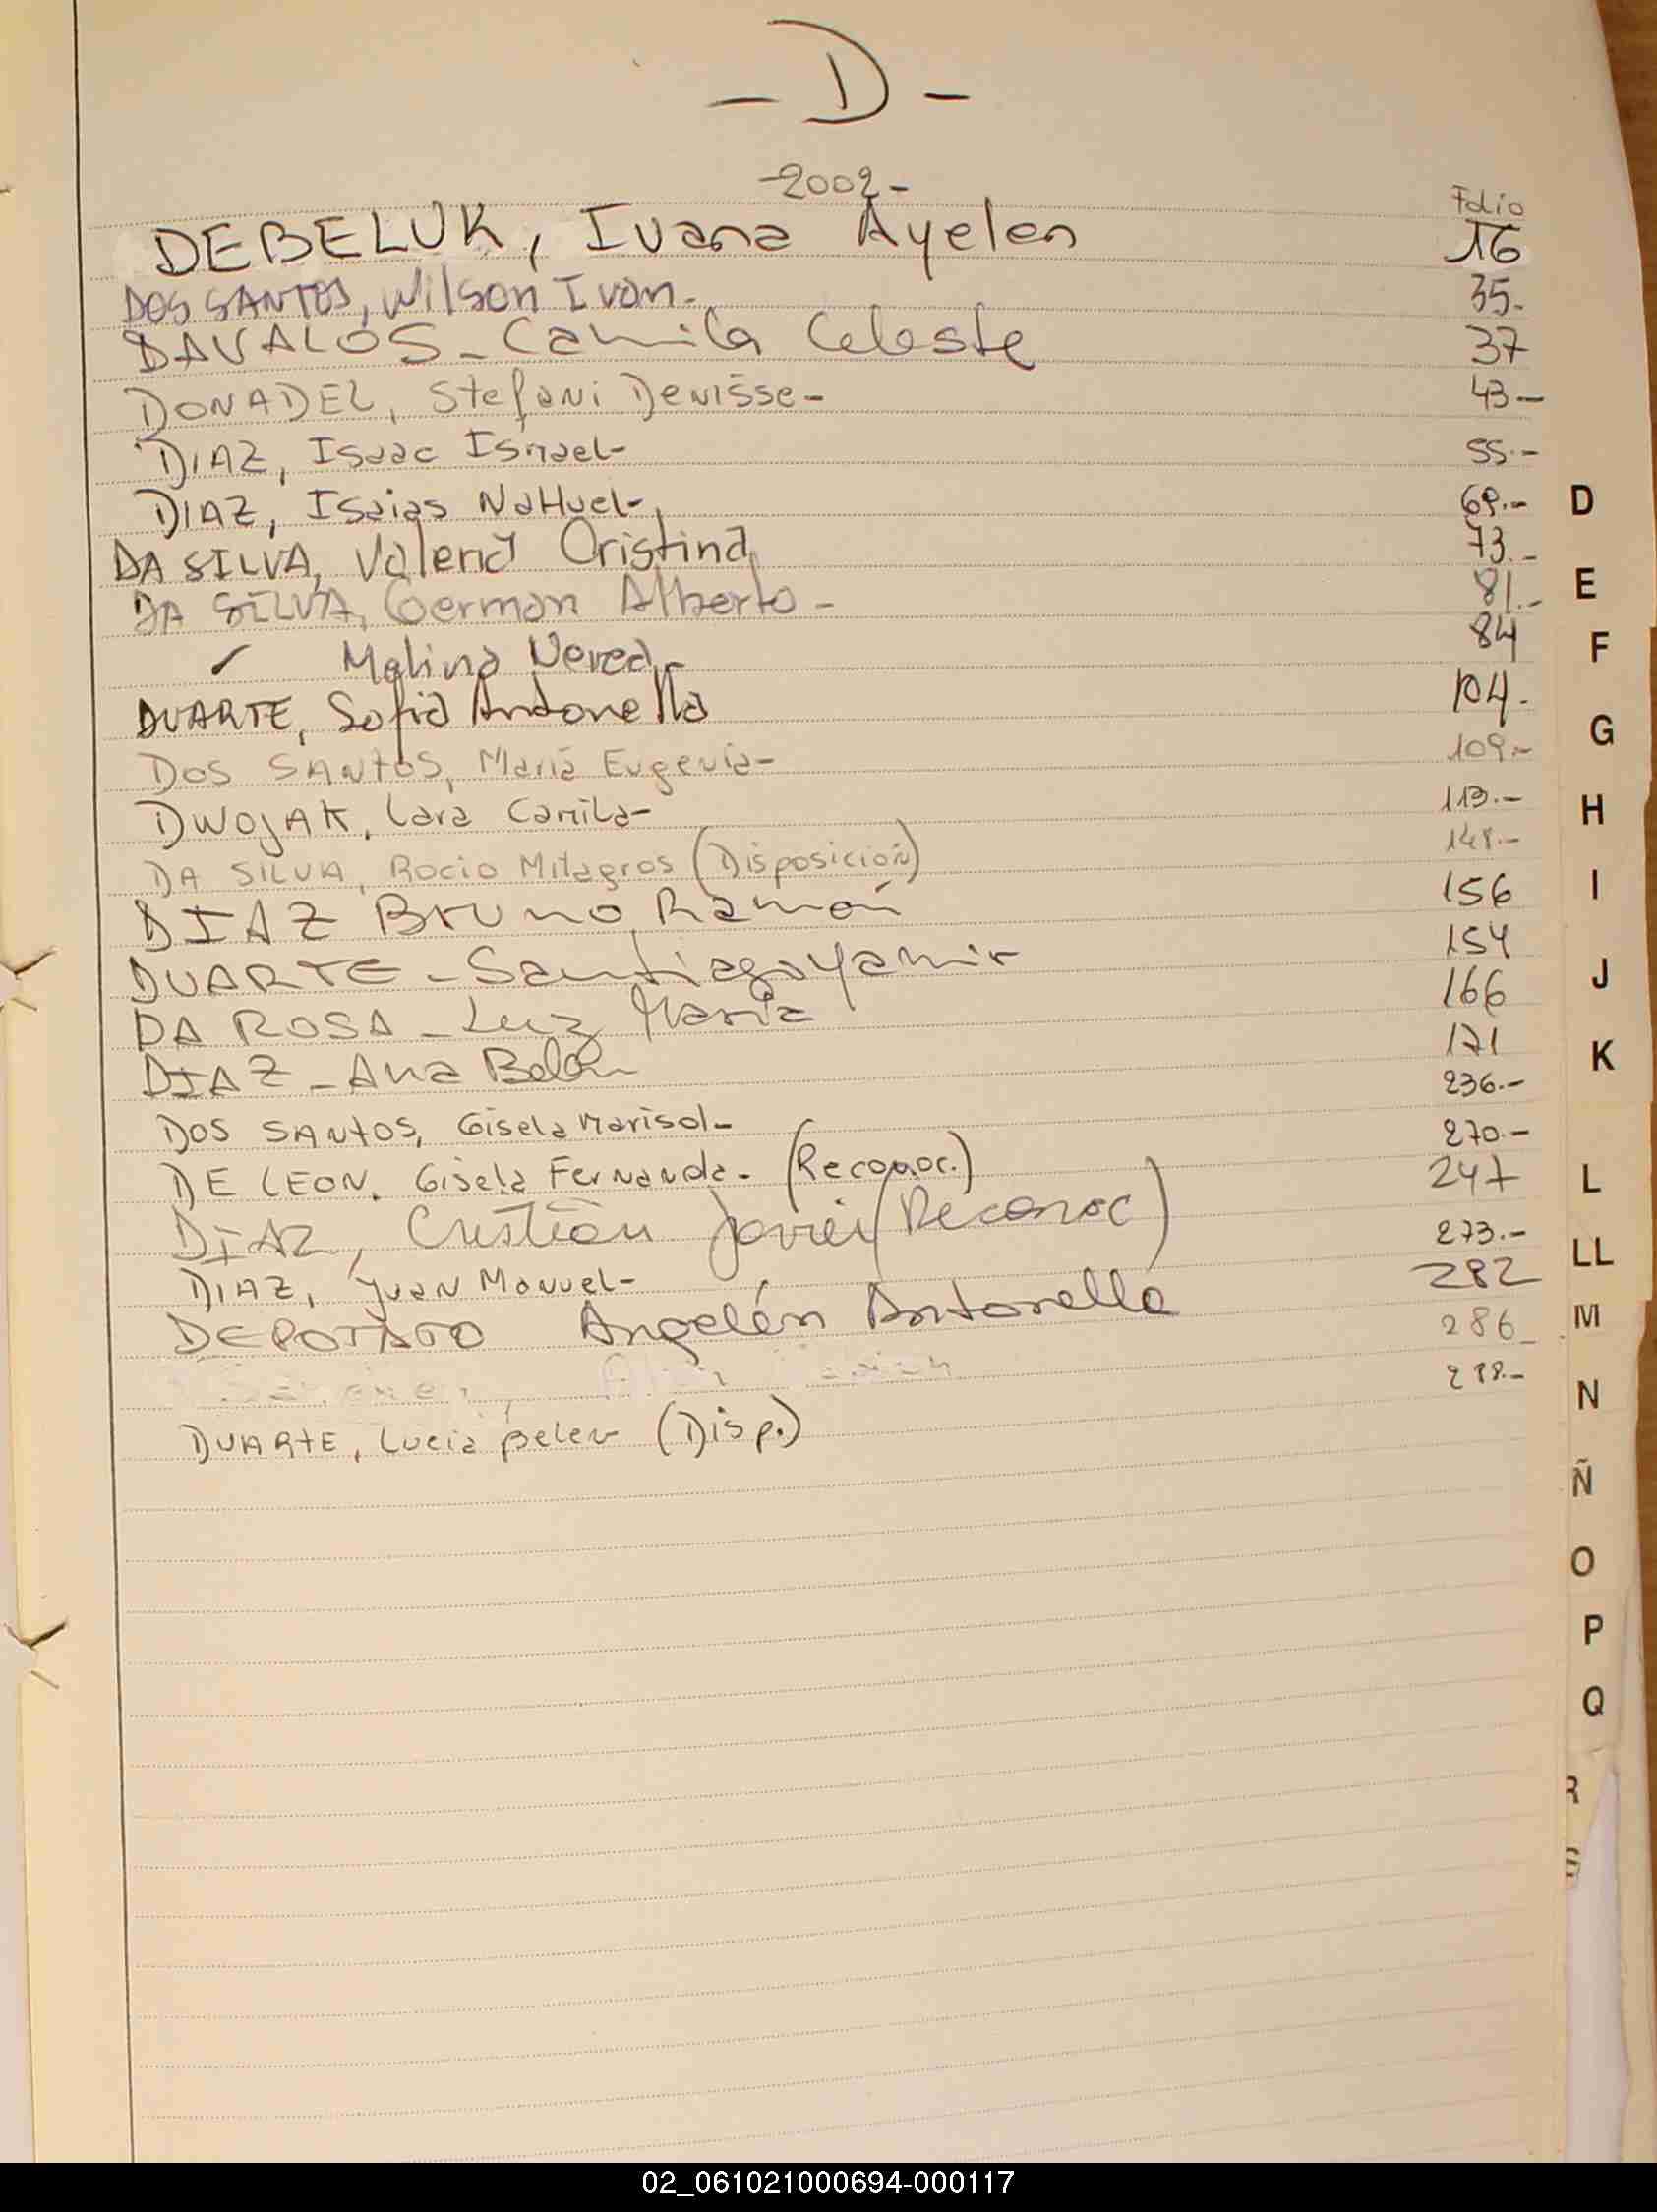 - D -
-2002-
Folio
DEBELUK, Ivana Ayelen 16
DOS SANTOS, Wilson Ivan.- 35.
DAVALOS - Camila Celeste 37
DONADEL, Stefani Denisse.- 43.-
DIAZ, Isaac Ismael- 55.-
DIAZ, Isaias NaHuel- 69.-
DA SILVA, Valeria Cristina 73.-
DA SILVA, German Alberto - 81.-
Melina Nerea.- 84
DUARTE, Sofia Antonella 104.
DOS SANTOS, Maria Eugenia- 109.-
DWOJAK, Lara Camila- 113.-
DA SILVA, Rocio Milagros (Disposición) 148.-
DIAZ Bruno Ramón 156
DUARTE - Santiago Yamir 154
DA ROSA - Luz Maria 166
DIAZ - Ana Belén 171
DOS SANTOS, Gisela Marisol- 236.-
DE LEON, Gisela Fernanda- (Reconoc.) 270.-
DIAZ, Cristian Javier (Reconoc) 247
DIAZ, Juan Manuel- 273.-
Angelén Antonella 282
286
DUARTE, Lucia Belen (Disp.)
D
E
F
G
H
I
J
K
L
LL
M
N
Ñ
O
P
Q
R
02_061021000694-000117